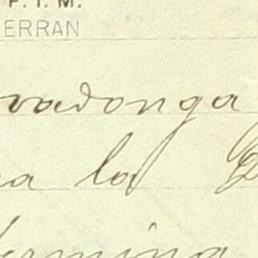 P. T. M.
ERRAN
vadonga
a la
ermina